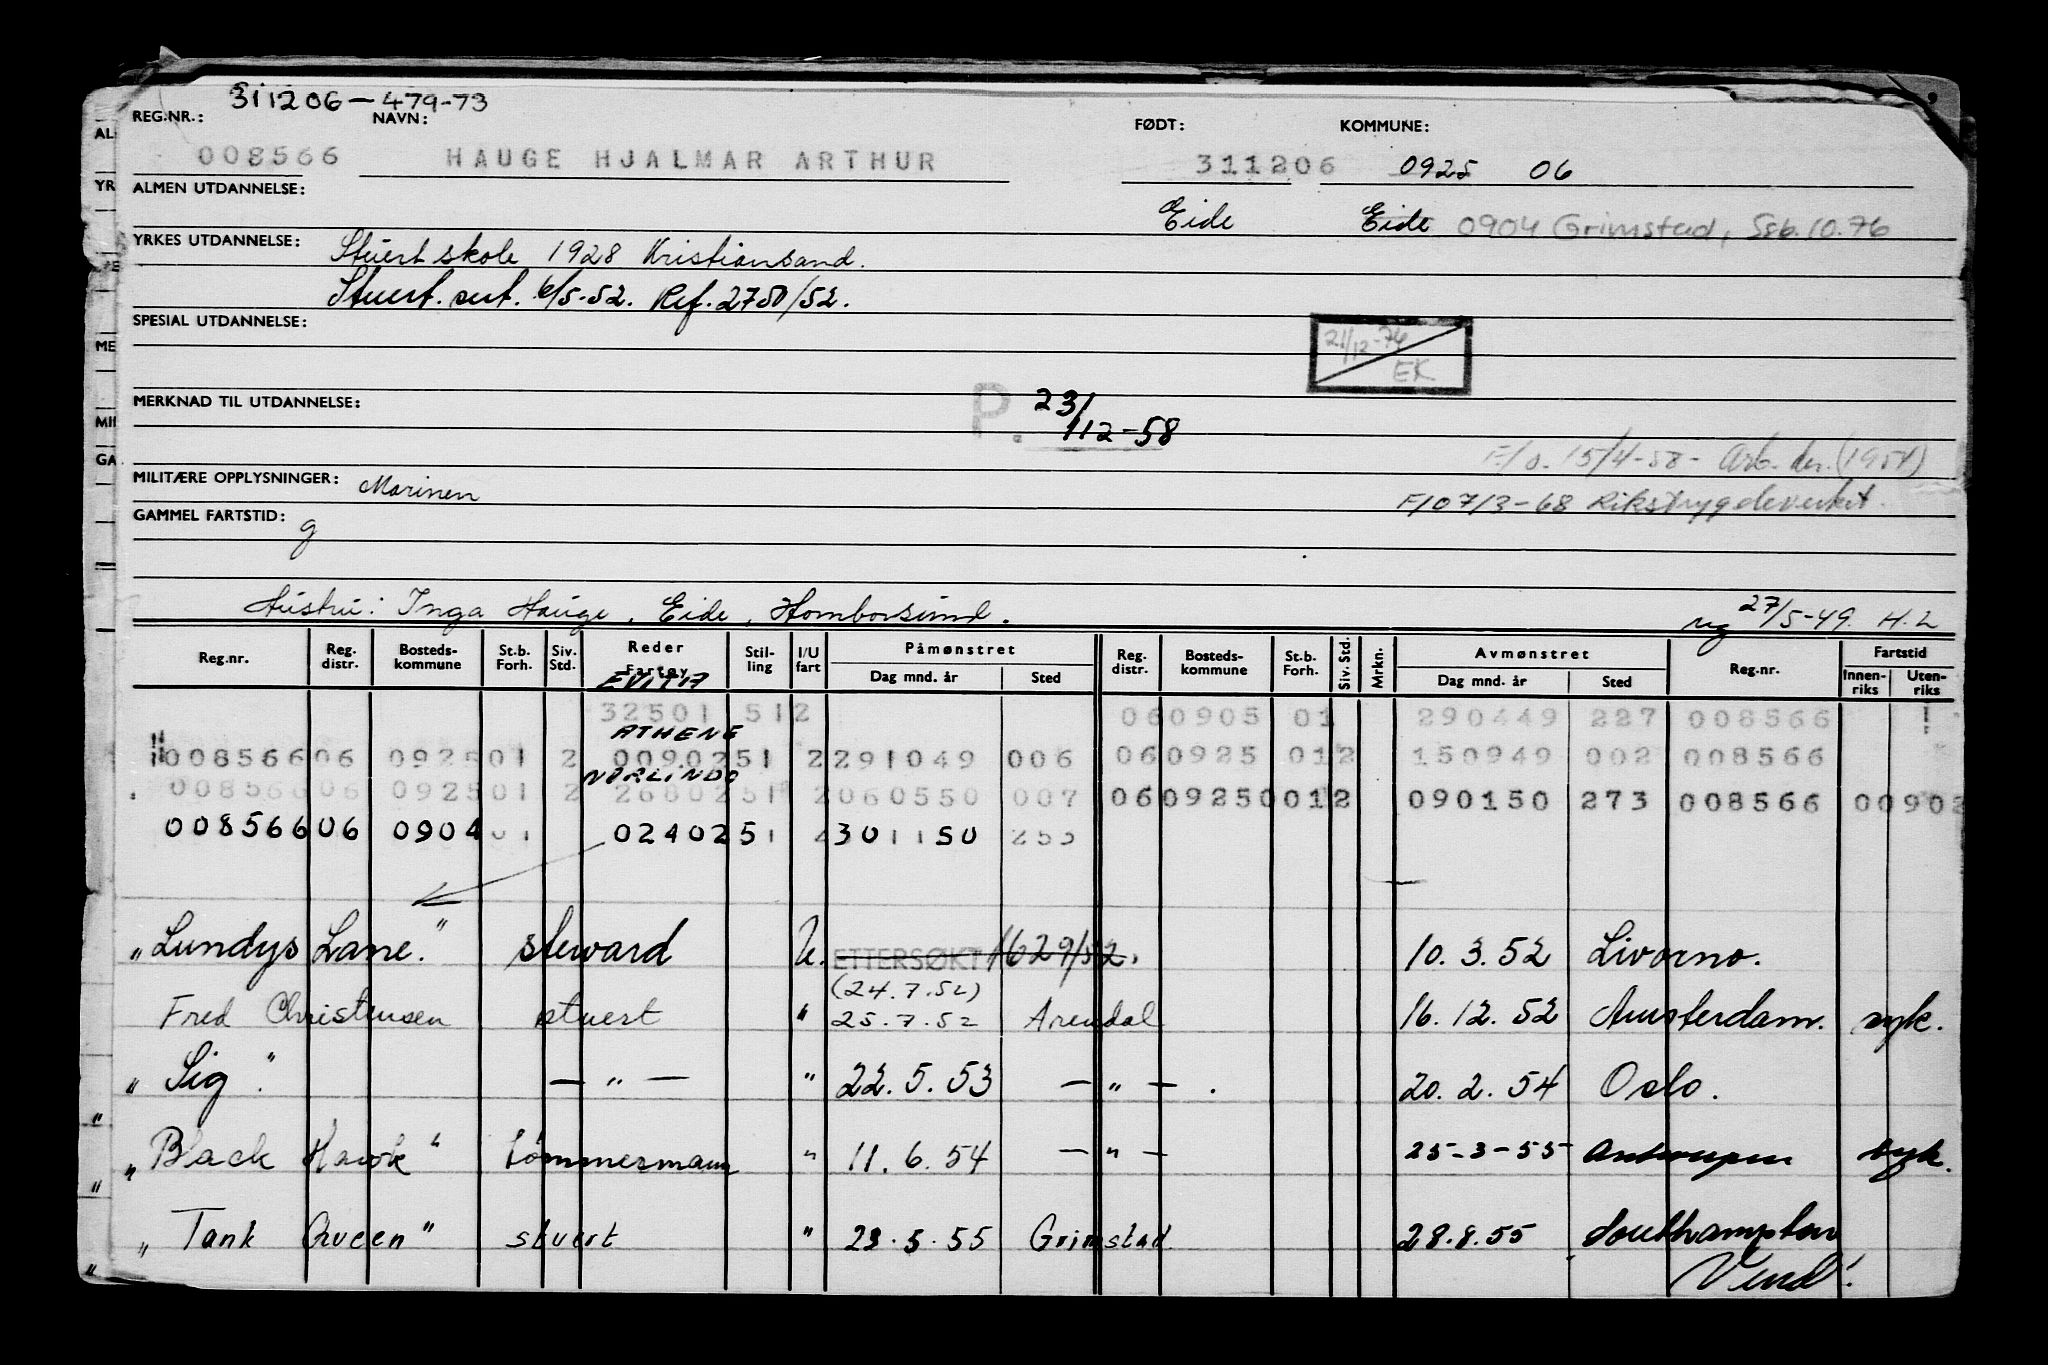 311206-479-73
REG.NR.: NAVN: FØDT: KOMMUNE:
008566 HAUGE HJALMAR ARTHUR 311206 0925 06
ALMEN UTDANNELSE:
Eide Eide 0904 Grimstad, Ssb. 10.76
YRKES UTDANNELSE: Stuert skole 1928 Kristiansand.
Stuert. sert. 6/5-52. Ref. 2750/52.
SPESIAL UTDANNELSE:
21/12-76 EK
MERKNAD TIL UTDANNELSE:
P. 23/12-58
F/o. 15/4-58 -
MILITÆRE OPPLYSNINGER: Marinen
F/o 7/3-68 Rikstrygdeverket.
GAMMEL FARTSTID: g
Hustru: Inga Hauge, Eide, Homborsund.
27/5-49. H.L
Reg.nr. Reg. distr. Bosteds-kommune St.b. Forh. Siv. Std. Reder Fartøy Stil-ling I/U fart Påmønstret Dag mnd. år Sted Reg. distr. Bosteds-kommune St.b. Forh. Siv. Std. Mrkn. Avmønstret Dag mnd. år Sted Reg.nr. Fartstid Innen-riks Uten-riks
EVITA
32501 512 060905 01 290449 227 008566 !
ATHENE
008566 06 0925 01 2 00902 51 2 291049 006 06 0925 01 2 150949 002 008566
NORLINDO
008566 06 0925 01 2 26802 51 2 060550 007 06 09250 01 2 090150 273 008566 00902
008566 06 0904 01 02402 51 301150 253
"Lundys Lane." steward U. ETTERSØKT 1629/52. 10.3.52 Livorno.
(24.7.52)
Fred Christensen stuert " 25.7.52 Arendal 16.12.52 Amsterdam. syk.
"Sig". — " — " 22.5.53 — " — . 20.2.54 Oslo.
"Black Hawk" tømmermann " 11.6.54 — " — 25-3-55 Antwerpen syk.
"Tank Queen" stuert " 23.5.55 Grimstad 28.8.55 Southampton
Vend!